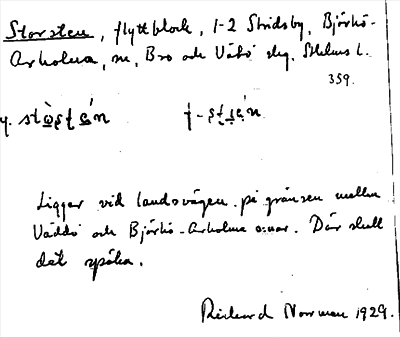 Storsten, flyttblock, 1-2 Skridsby, Björkö-
Arholma, sn, Bro och Vätö skg. Sthlms l.
359.
Ligger vid landsvägen på gränsen mellan
Väddö och Björkö-Arholma s:nar. Där skall
det spöka.
Richard Norrman 1929.